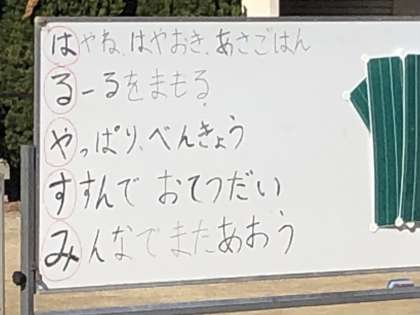 はやね、はやおき、あさごはん
るーるをまもる
やっぱり、べんきょう
すすんで おてつだい
みんなでまたあおう